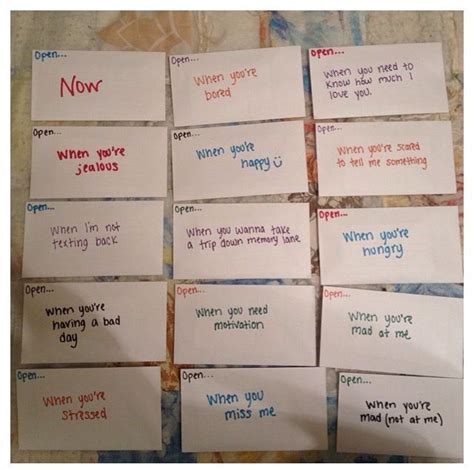 Open...
Now
Open...
When you're
bored
Open...
When you need to
know how much I
love you.
Open...
When you're
jealous
Open...
When you're
happy :)
Open...
When you're scared
to tell me something
Open...
When I'm not
texting back
Open...
When you wanna take
a trip down memory lane
Open...
When you're
hungry
Open...
When you're
having a bad
day
Open...
When you need
motivation
Open...
When you're
mad at me
Open...
When you're
stressed
Open...
When you
miss me
Open...
When you're
mad (not at me)